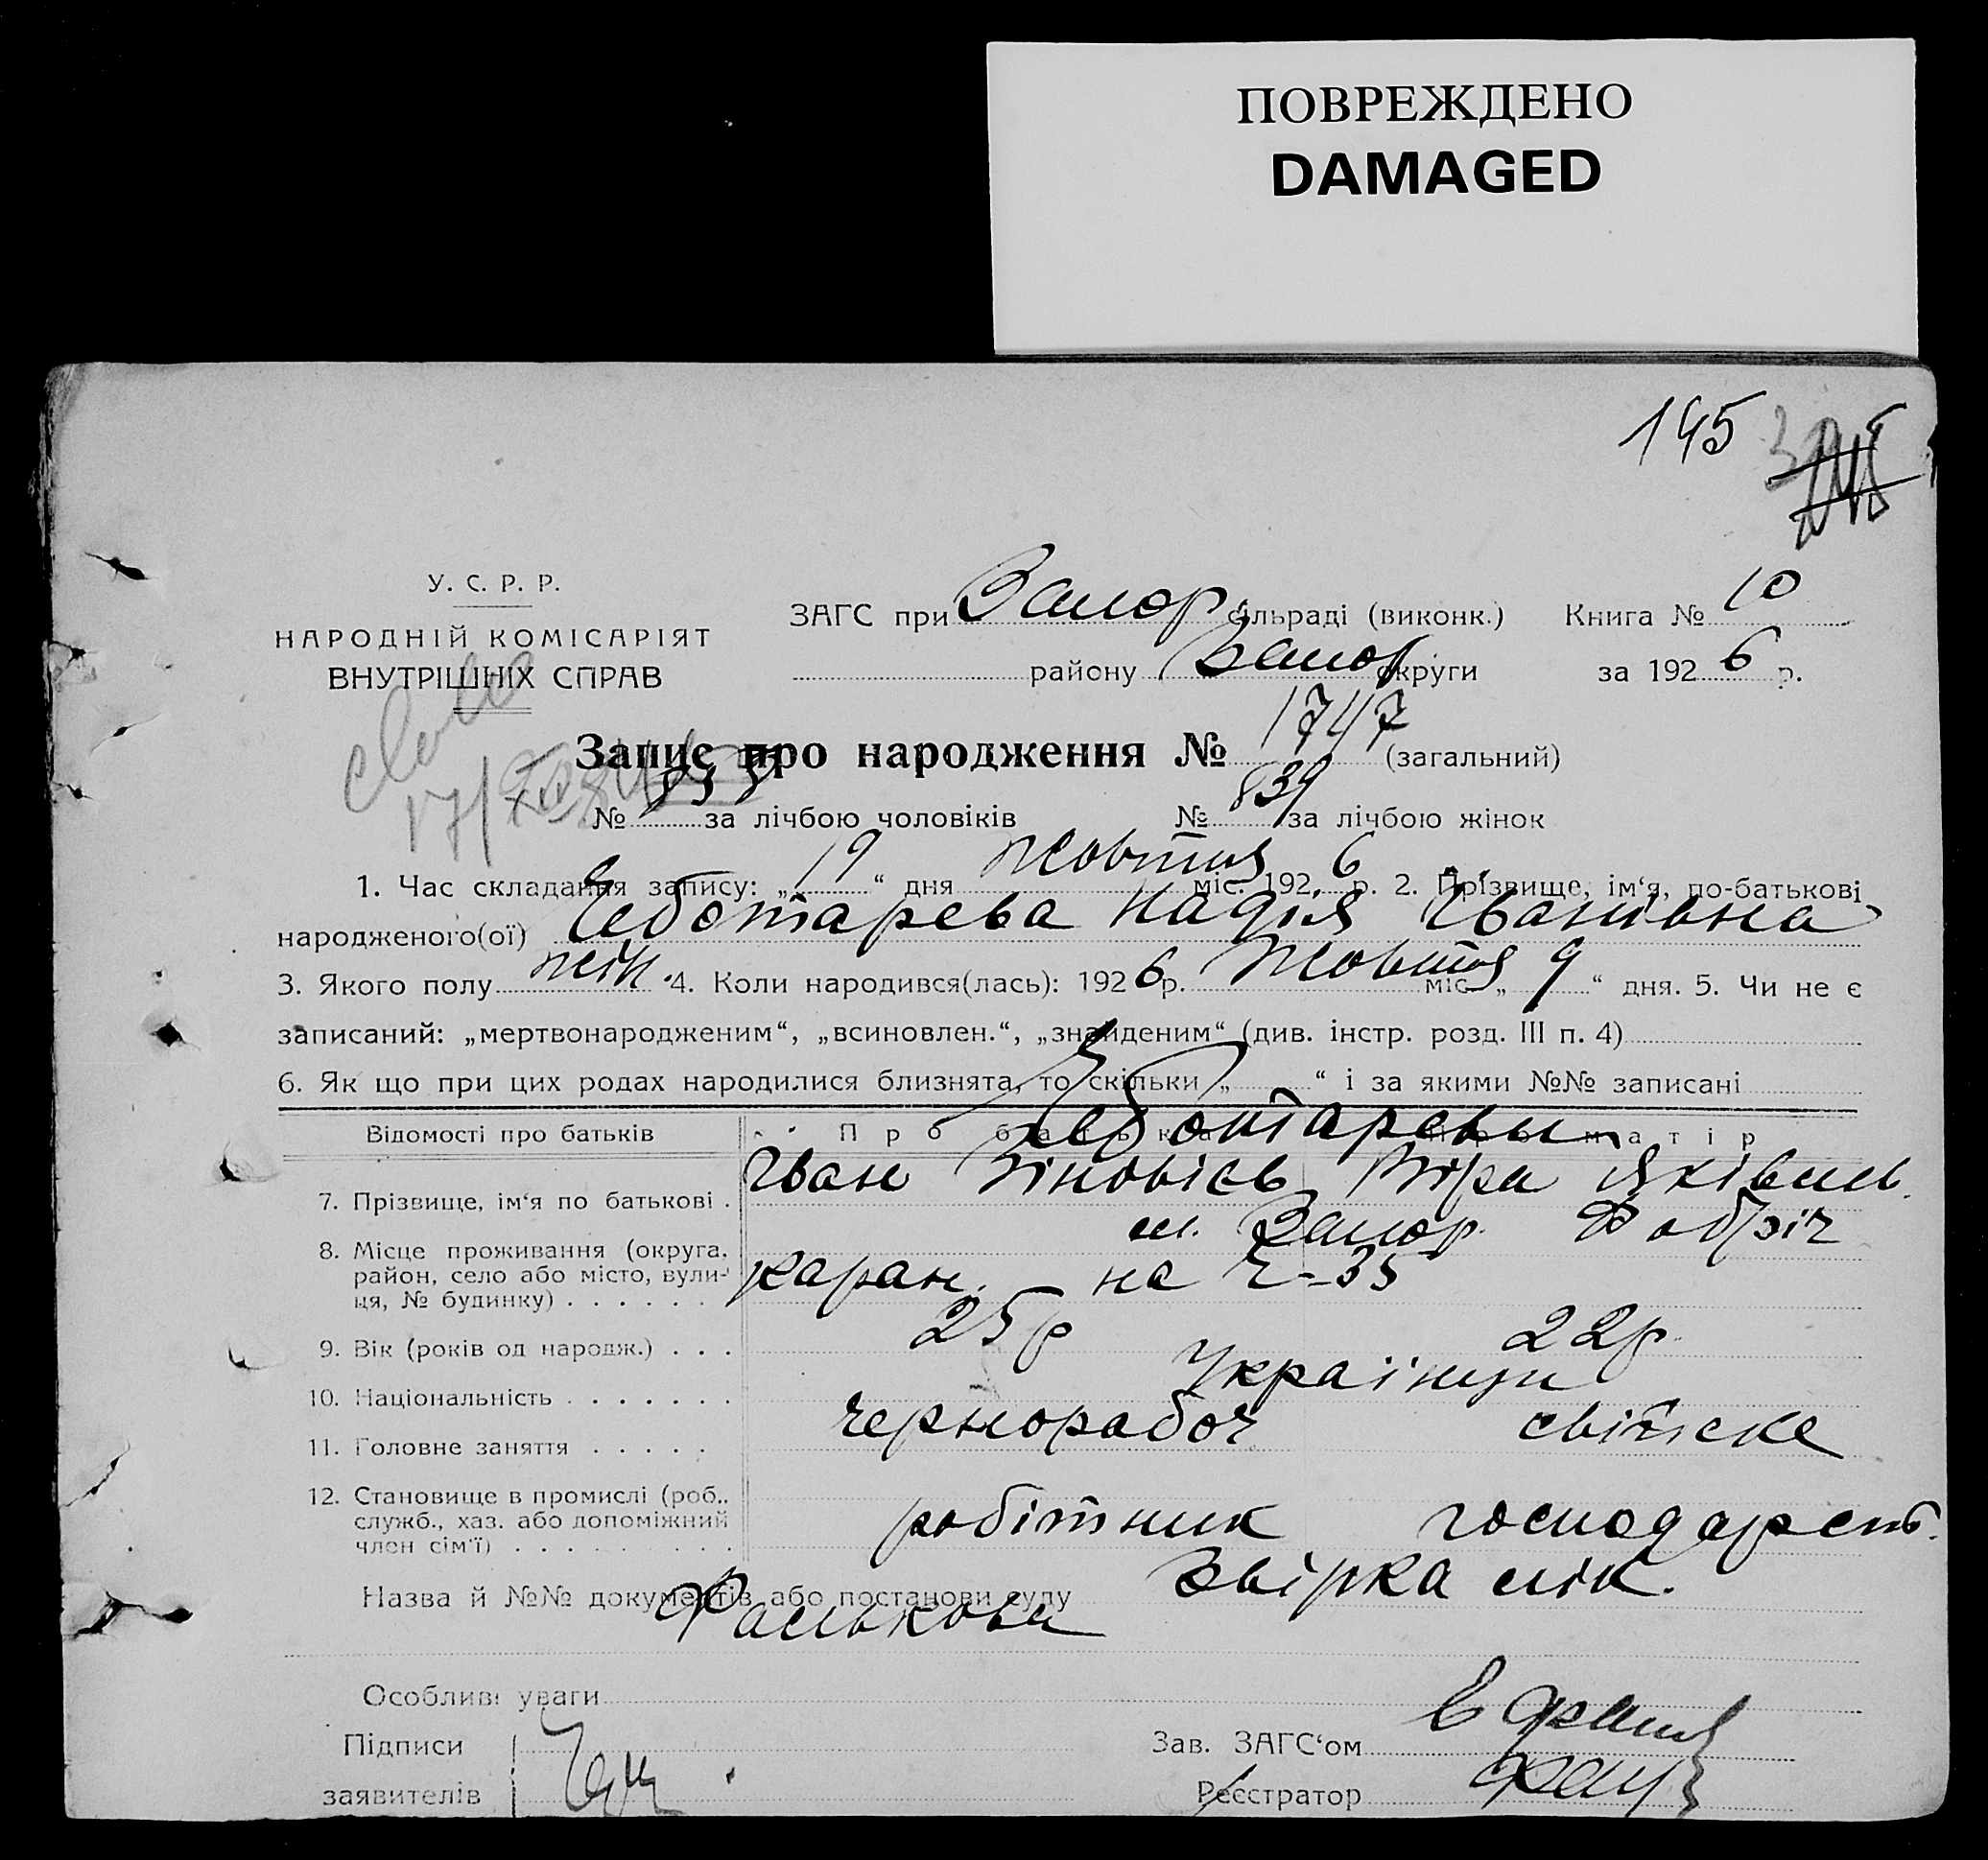 ПОВРЕЖДЕНО
DAMAGED
145
У. С. Р. Р.
НАРОДНІЙ КОМІСАРІЯТ
ВНУТРІШНІХ СПРАВ
ЗАГС при Запор сільраді (виконк.) Книга № 10
району Запор округи за 1926 р.
Запис про народження № 1747 (загальний)
№ за лічбою чоловіків № 839 за лічбою жінок
1. Час складання запису: „19“ дня Жовтня міс. 1926 р. 2. Прізвище, ім‘я, по-батькові
народженого(ої) Чеботарева Надія Іванівна
3. Якого полу жін. 4. Коли народився(лась): 1926 р. Жовтня міс. „9“ дня. 5. Чи не є
записаний: „мертвонародженим“, „всиновлен.“, „знайденим“ (див. інстр. розд. III п. 4)
6. Як що при цих родах народилися близнята, то скільки „ “ і за якими №№ записані
Відомості про батьків Про батька Про матір
Чеботаревы
7. Прізвище, ім‘я по батькові . Іван Зіновієв Віра Яківлев.
8. Місце проживання (округа, район, село або місто, вулиця, № будинку) . . . . . . м. Запор.
каран. на 2-35
9. Вік (років од народж.) . . . 25 р 22 р.
10. Національність . . . . . . . Українци
11. Головне заняття . . . . . чернорабоч
12. Становище в промислі (роб., служб., хаз. або допоміжний член сім‘ї) . . . . . . . . . робітник господарств.
Назва й №№ документів або постанови суду Звірка
Особливі уваги
Підписи
заявителів
Зав. ЗАГС‘ом
Реєстратор